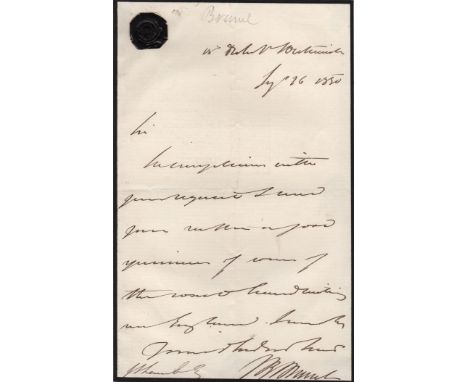 Brunel
18 Duke St Westminster
Sep 26 1850
Sir
In compliance with
your request I send
you rather a good
specimen of some of
the worst handwriting
in England. I am Sir
Your obedient Servt
I K Brunel